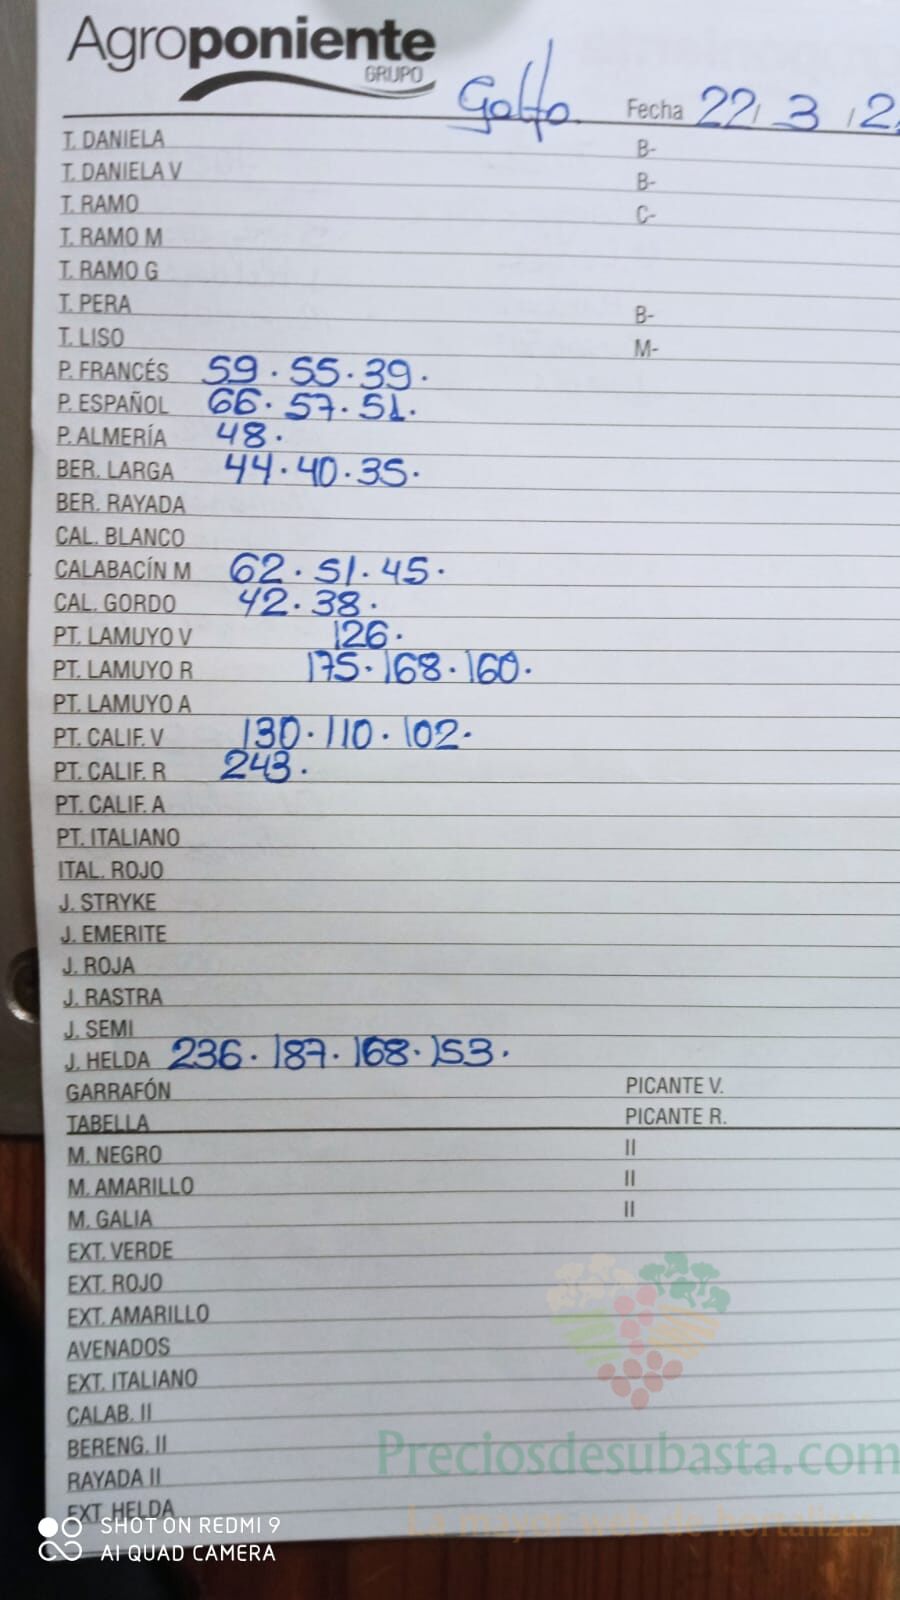 Agroponiente
GRUPO
Golfo. Fecha 22/ 3 /2
T. DANIELA B-
T. DANIELA V B-
T. RAMO C-
T. RAMO M
T. RAMO G
T. PERA B-
T. LISO M-
P. FRANCÉS 59 · 55 · 39 ·
P. ESPAÑOL 66 · 57 · 51 ·
P. ALMERÍA 48 ·
BER. LARGA 44 · 40 · 35 ·
BER. RAYADA
CAL. BLANCO
CALABACÍN M 62 · 51 · 45 ·
CAL. GORDO 42 · 38 ·
PT. LAMUYO V 126 ·
PT. LAMUYO R 175 · 168 · 160 ·
PT. LAMUYO A
PT. CALIF. V 130 · 110 · 102 ·
PT. CALIF. R 243 ·
PT. CALIF. A
PT. ITALIANO
ITAL. ROJO
J. STRYKE
J. EMERITE
J. ROJA
J. RASTRA
J. SEMI
J. HELDA 236 · 187 · 168 · 153 ·
GARRAFÓN PICANTE V.
TABELLA PICANTE R.
M. NEGRO II
M. AMARILLO II
M. GALIA II
EXT. VERDE
EXT. ROJO
EXT. AMARILLO
AVENADOS
EXT. ITALIANO
CALAB. II
BERENG. II
RAYADA II
EXT. HELDA
Preciosdesubasta.com
La mayor web de hortalizas
SHOT ON REDMI 9
AI QUAD CAMERA